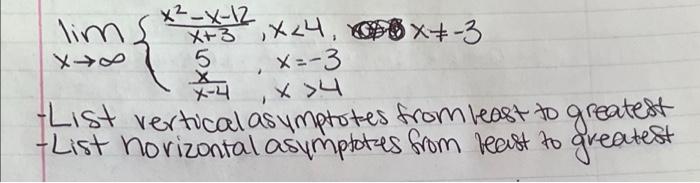 lim { x²-x-12 / x+3 , x<4, x≠-3
x→∞ 5 , x=-3
x / x-4 , x>4
-List vertical asymptotes from least to greatest
-List horizontal asymptotes from least to greatest